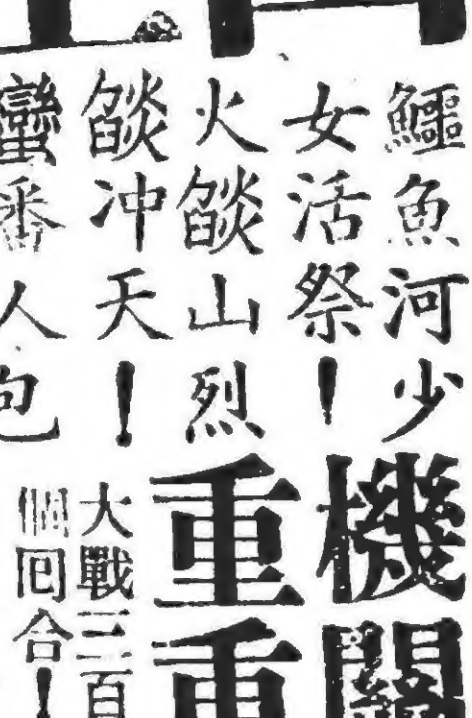 鱷魚河少
女活祭！
火燄山烈
燄冲天！
蠻番人包
機關
重重
大戰三百
個囘合！